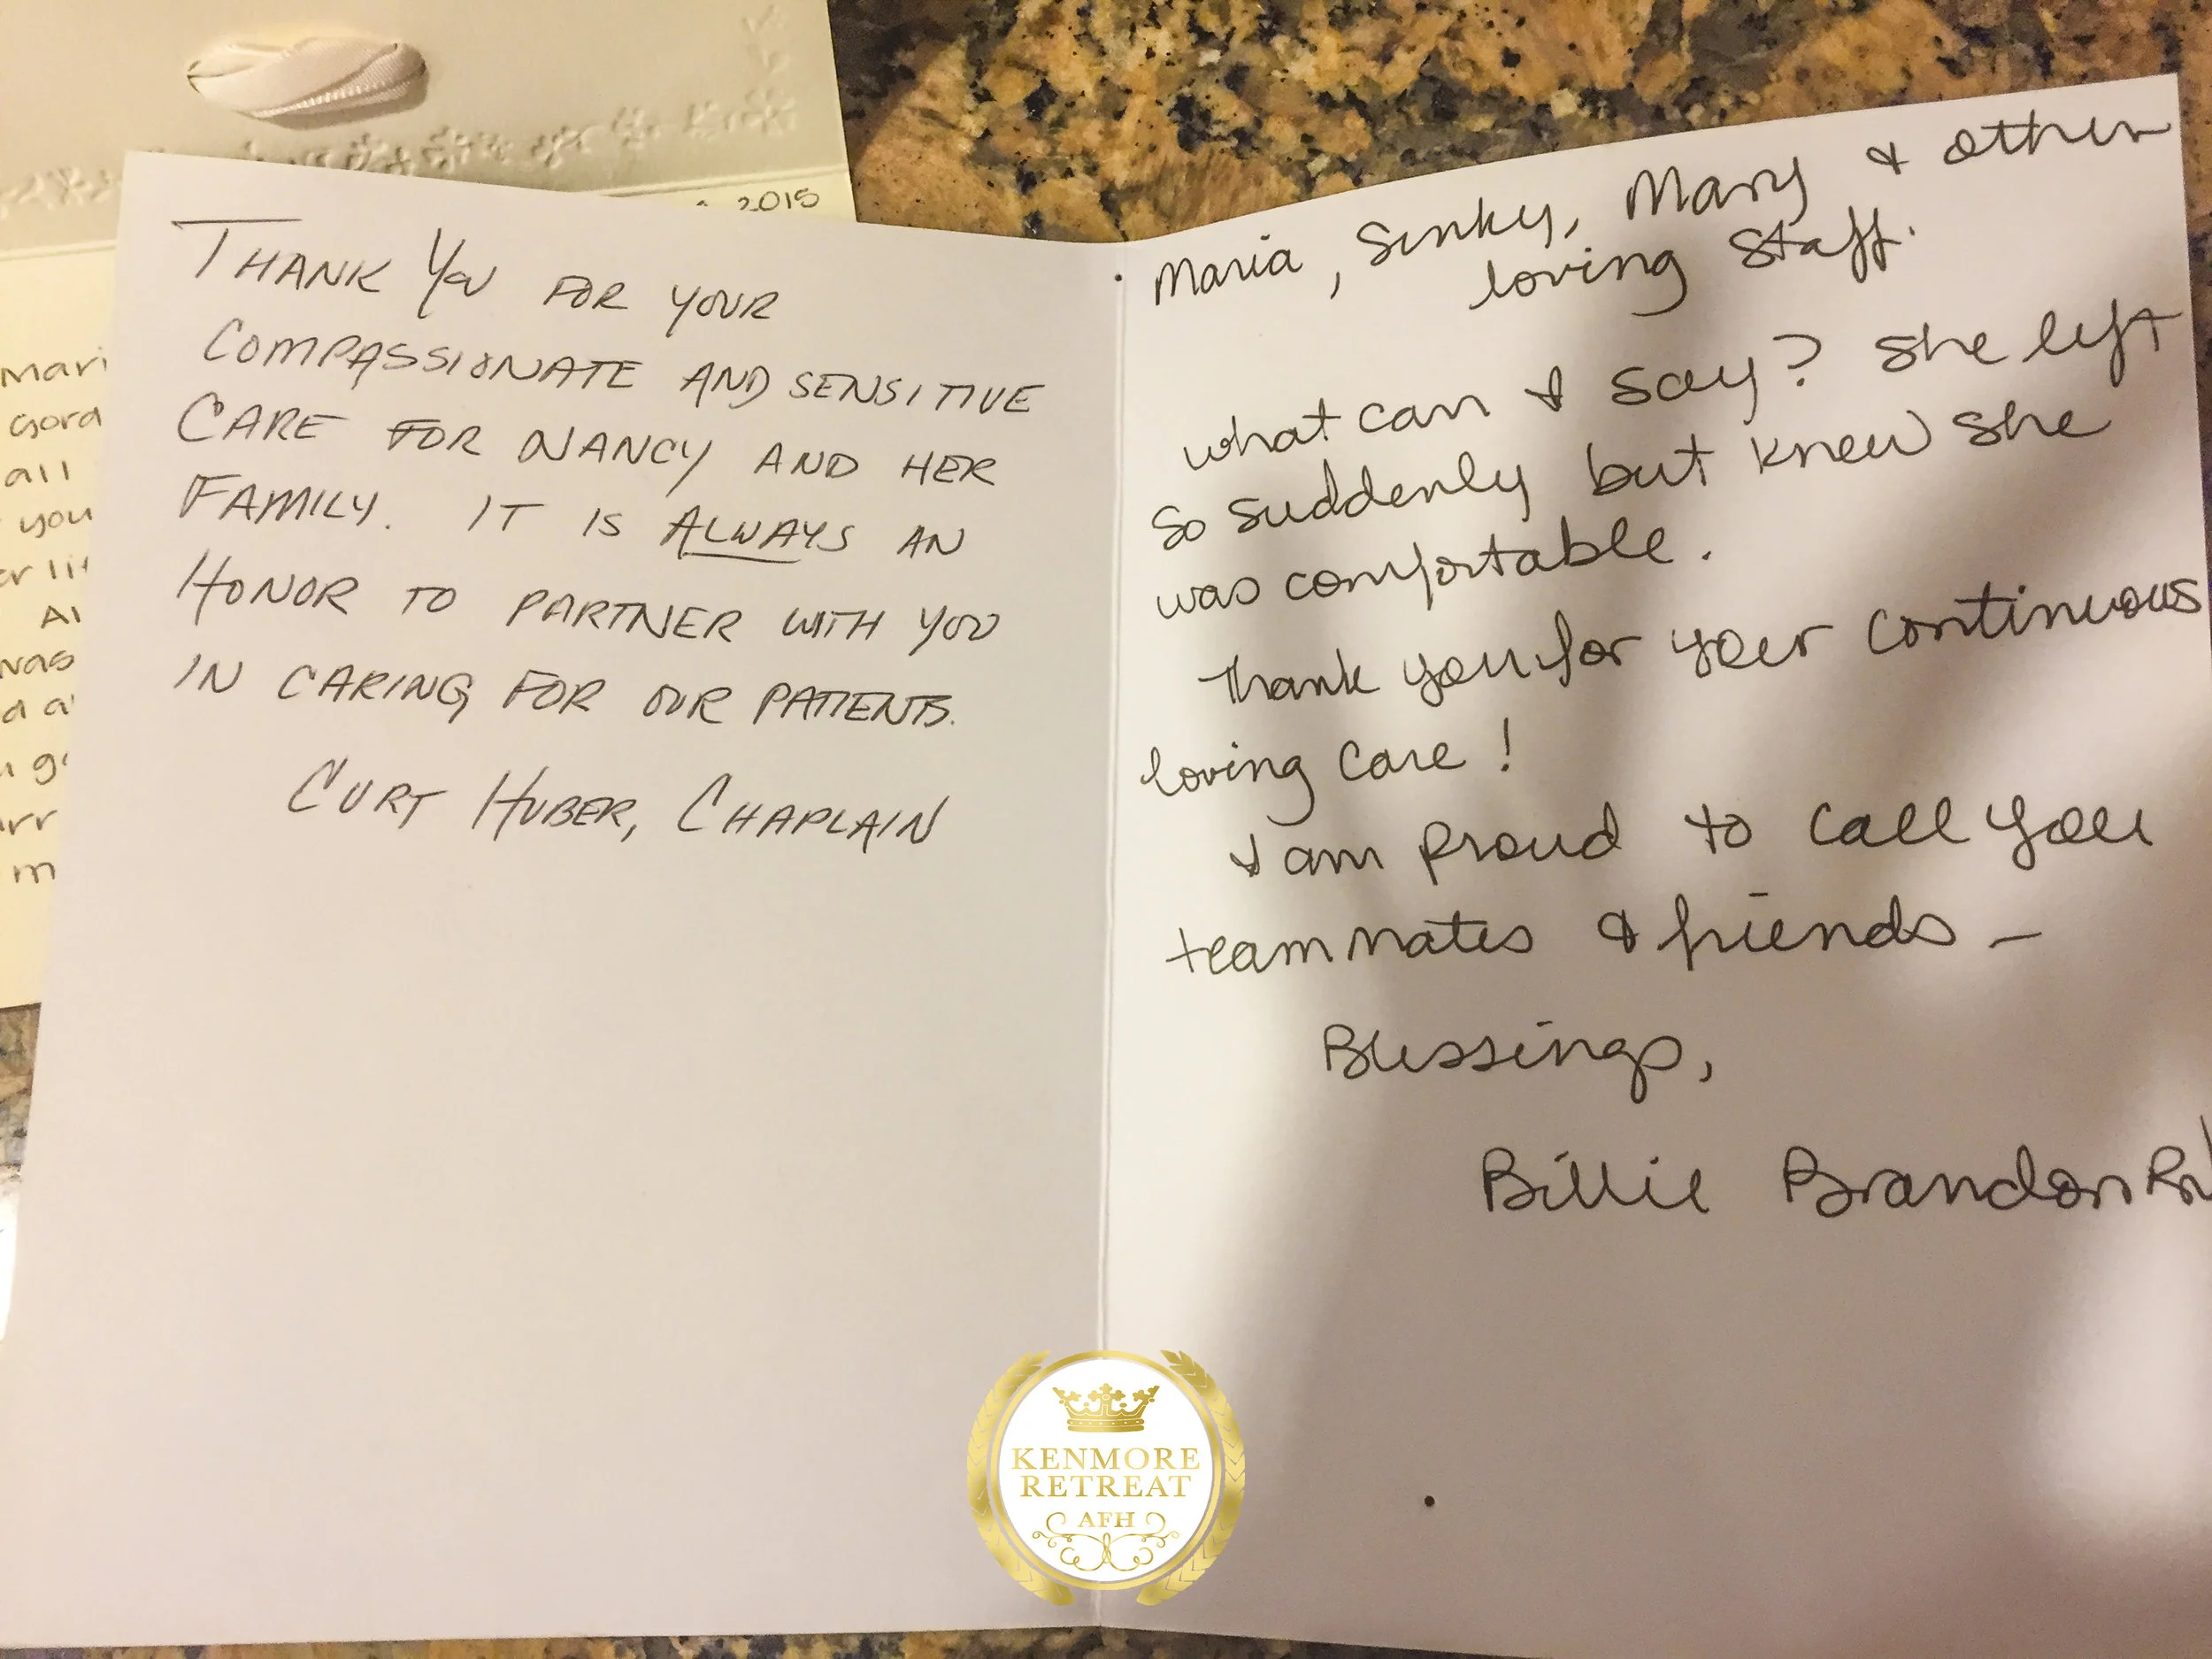 2015
Mari
Gord
all
you
AI
was
m
THANK YOU FOR YOUR
COMPASSIONATE AND SENSITIVE
CARE FOR NANCY AND HER
FAMILY. IT IS ALWAYS AN
HONOR TO PARTNER WITH YOU
IN CARING FOR OUR PATIENTS.
CURT HUBER, CHAPLAIN
Maria, Sinky, Mary & other
loving staff.
what can I say? She left
so suddenly but knew she
was comfortable.
Thank you for your continuous
loving care!
I am proud to call you
teammates & friends –
Blessings,
Billie Brandon RN
KENMORE
RETREAT
AFH